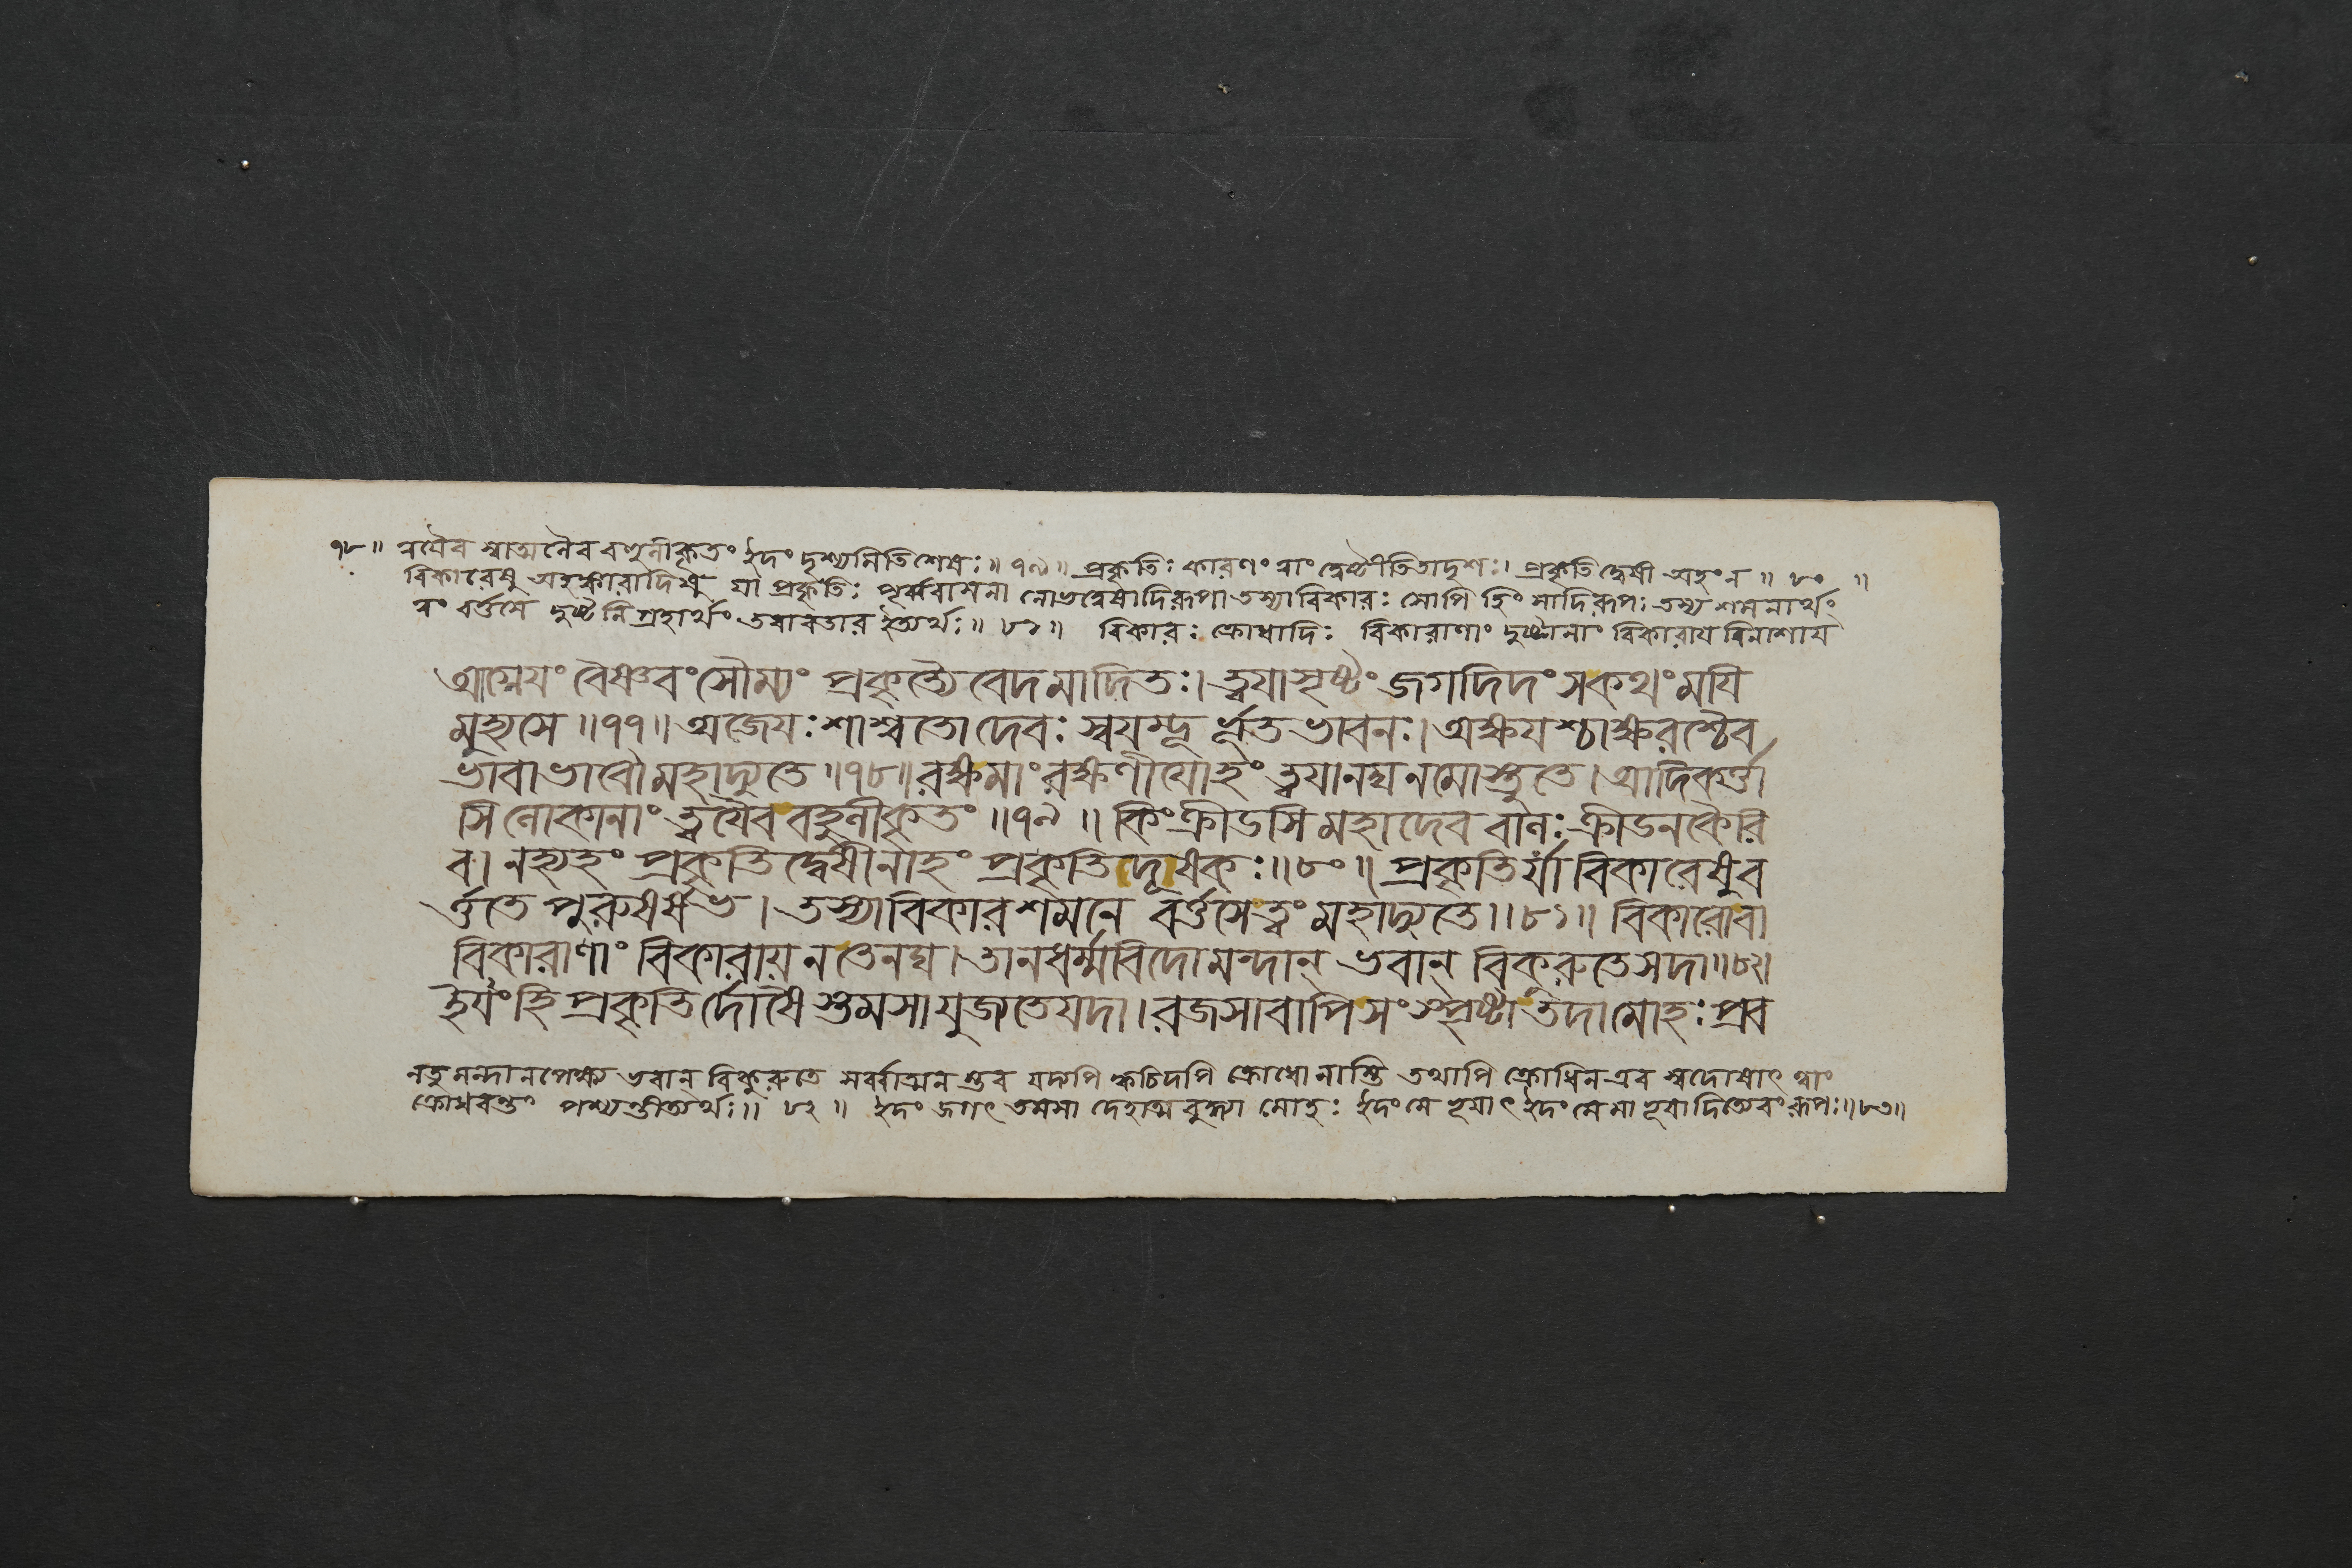 ৭৮॥ ত্বয়ৈব স্বাত্মনৈব বহুলীকৃতং ইদং দৃশ্যমিতিশেষঃ॥ ৭৯॥ প্রকৃতিঃ কারণং তাং দ্বেষ্টীতিতাদৃশঃ। প্রকৃতিদ্বেষী অহংন ॥ ৮০ ॥
বিকারেষু অহঙ্কারাদিষু যা প্রকৃতিঃ পূর্ব্ববাসনা লোভদ্বেষাদিরূপা তস্যাবিকারঃ সোপি হিংসাদিরূপঃ তস্য শমনার্থং
ত্বং বর্ত্তসে দুষ্টনিগ্রহার্থং তবাবতার ইত্যর্থঃ॥ ৮১॥ বিকারঃ ক্রোধাদিঃ বিকারাণাং দুষ্টানাং বিকারায় বিনাশায়
আগ্নেয়ং বৈষ্ণবংসৌম্যং প্রকৃত্যৈবেদমাদিতঃ। ত্বয়াসৃষ্টং জগদিদং সকথংময়ি
মুহ্যসে ॥৭৭॥ অজেয়ঃশাশ্বতোদেবঃ স্বয়ম্ভূর্ভূতভাবনঃ। অক্ষয়শ্চাক্ষরশ্চৈব
ভাবাভাবৌমহাদ্যুতে ॥৭৮॥ রক্ষমাংরক্ষণীয়োহং ত্বয়ানঘনমোস্তুতে। আদিকর্ত্তা
সিলোকানাং ত্বয়ৈববহুলীকৃতং ॥৭৯॥ কিংক্রীডসি মহাদেব বালঃক্রীডনকৈরি
ব। নহ্যহং প্রকৃতিদ্বেষীনাহং প্রকৃতিদূষকঃ॥৮০॥ প্রকৃতির্যা বিকারেষুব
র্ত্ততে পুরুষর্ষভ। তস্যাবিকারশমনে বর্ত্তসেত্বং মহাদ্যুতে॥৮১॥ বিকারোবা
বিকারাণাং বিকারায় নতেনঘ। তানধর্ম্মবিদোমন্দান্ ভবান্ বিকুরুতেসদা॥৮২॥
ইয়ংহি প্রকৃতির্দোষৈস্তমসাযুজ্যতেযদা। রজসাবাপিসংস্পৃষ্টা তদামোহঃপ্রব
নতু মন্দানপেক্ষ্য ভবান্ বিকুরুতে সর্ব্বাত্মনস্তব যদ্যপি ক্বচিদপি ক্রোধোনাস্তি তথাপি ক্রোধিনএব স্বদোষাৎ ত্বাং
ক্রোধবন্তং পশ্যন্তীত্যর্থঃ॥ ৮২॥ ইদং জগৎ তমসা দেহাত্মবুদ্ধ্যা মোহঃ ইদংমে ভূয়াৎ ইদংমেমা ভূয়াদিত্যেবংরূপঃ॥৮৩॥